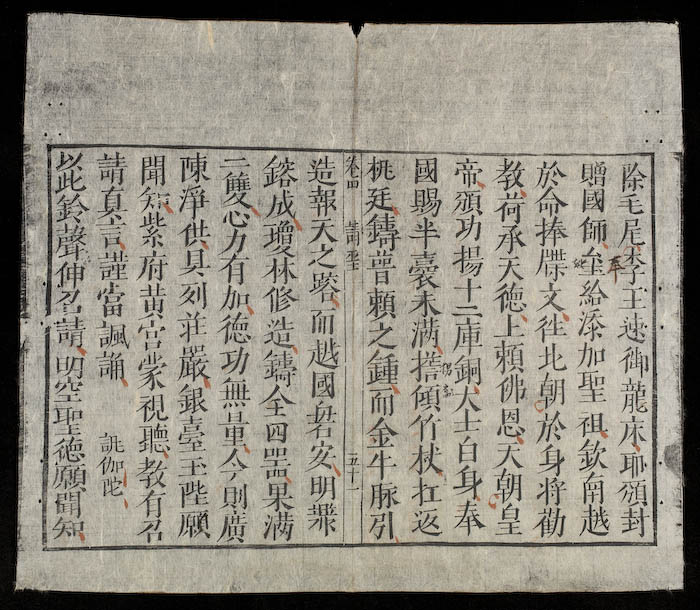 除毛尾李王速御龍床耶頒封
贈國師垒給添加聖祖欽南越
於命捧牒文徃北朝於身將勸
教荷承天德上頼佛恩天朝皇
帝頒功揚十二庫銅大士白身奉
國賜半囊未滿擔傾竹杖扛返
桃廷鑄普頼之鍾而金牛脉引
卷四 請聖 五十一
造報天之塔而越國君安明
鎔成瓊林修造鑄全四噐果滿
二雙心力有加德功無量今則廣
陳淨供具列莊嚴銀臺玉陛願
聞知紫府黄宫蒙視聽教有召
請真言謹當諷誦 誂伽陀
以此鈴聲伸召請明空聖德願聞知